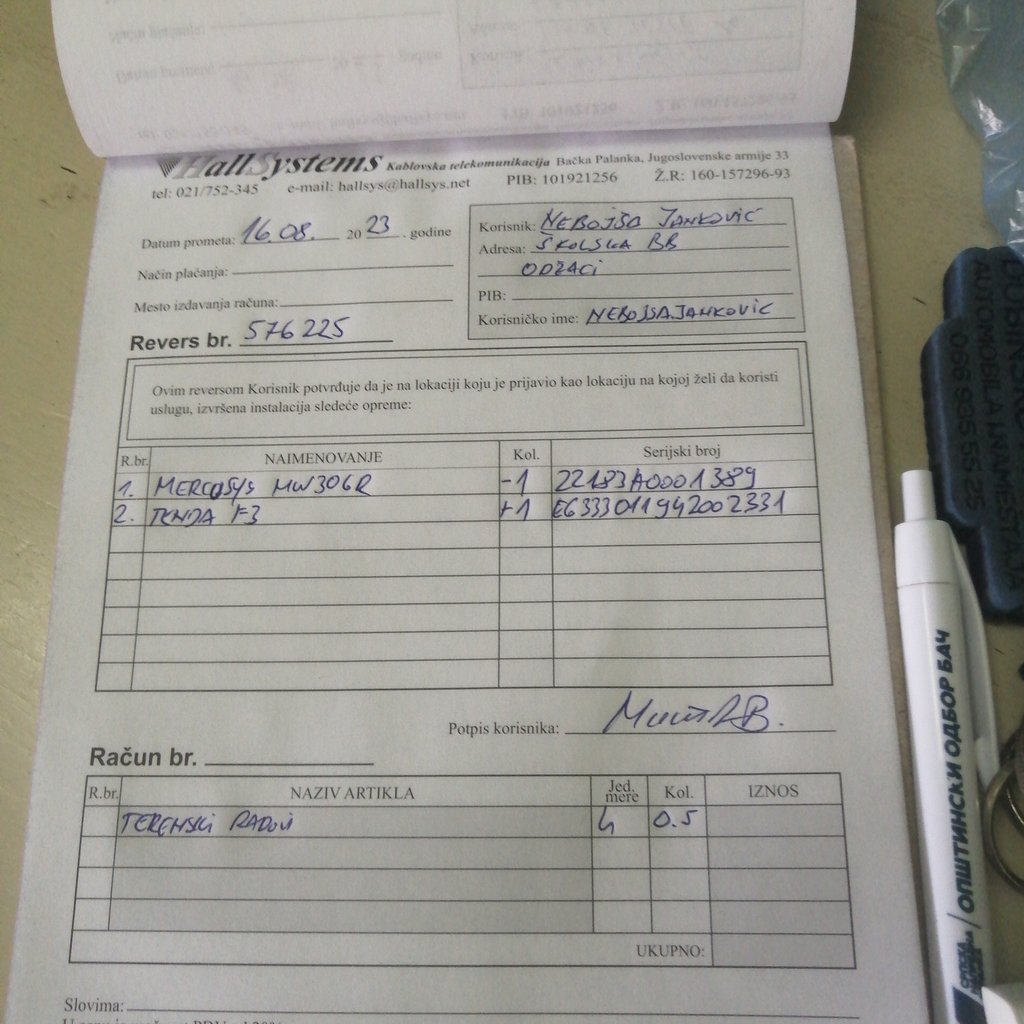 HallSystems Kablovska telekomunikacija Bačka Palanka, Jugoslovenske armije 33
tel: 021/752-345 e-mail: hallsys@hallsys.net PIB: 101921256 Ž.R: 160-157296-93
Datum prometa: 16.08. 2023. godine
Način plaćanja:
Mesto izdavanja računa:
Revers br. 576225
Korisnik: NEBOJŠA JANKOVIĆ
Adresa: ŠKOLSKA BB
ODŽACI
PIB:
Korisničko ime: NEBOJSA.JANKOVIC
Ovim reversom Korisnik potvrđuje da je na lokaciji koju je prijavio kao lokaciju na kojoj želi da koristi
uslugu, izvršena instalacija sledeće opreme:
R.br. NAIMENOVANJE Kol. Serijski broj
1. MERCUSYS MW306R -1 22183A0001389
2. TENDA F3 +1 E6333011942002331
Potpis korisnika:
Račun br.
R.br. NAZIV ARTIKLA Jed. mere Kol. IZNOS
TERENSKI RADOVI h 0.5
UKUPNO:
Slovima:
AUTOMOBILA I NAMEŠTAJA
066 935 55 25
ОПШТИНСКИ ОДБОР БАЧ